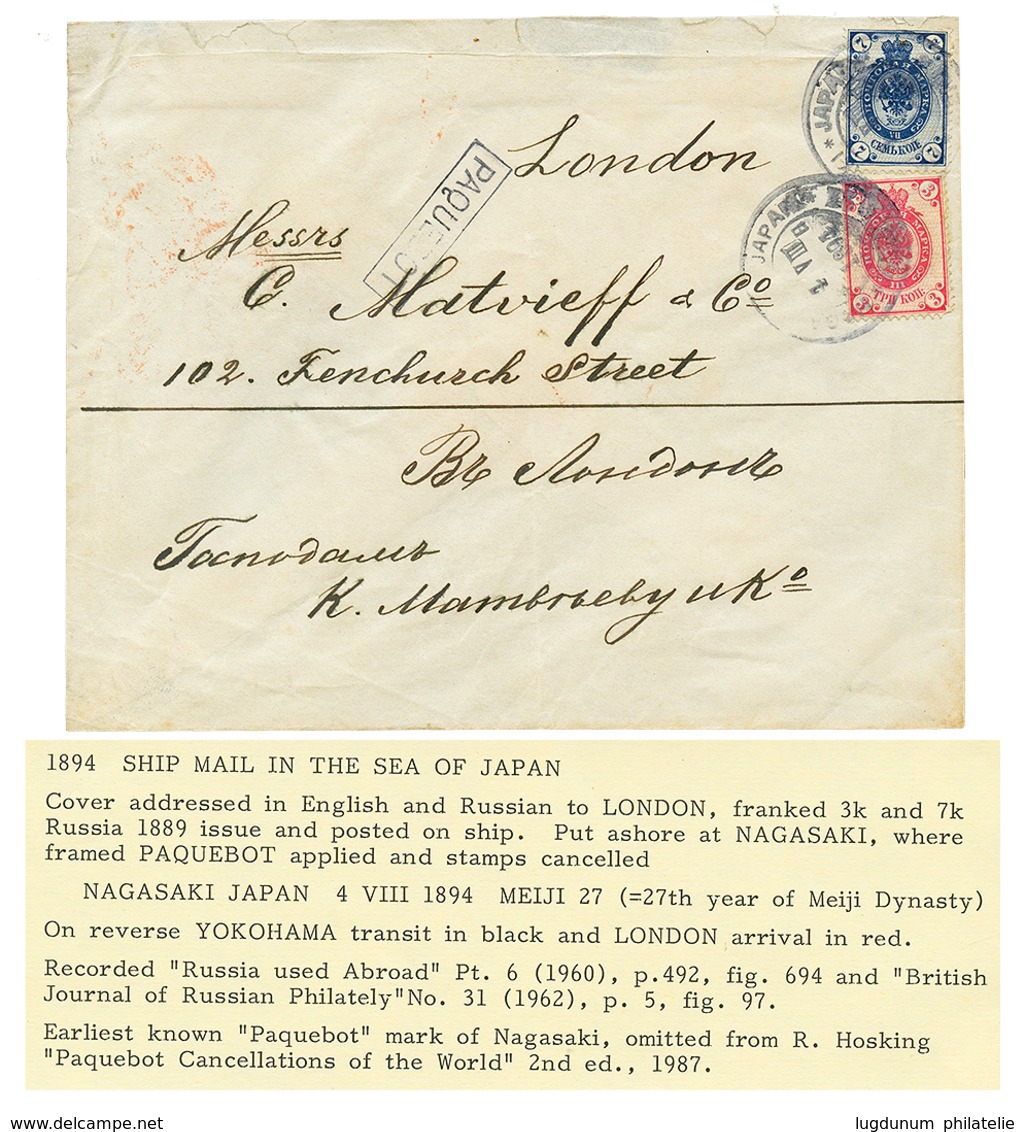 London
PAQUEBOT
Messrs
C. Matvieff & Co
102. Fenchurch Street
Въ Лондонъ
Господамъ
К. Матвѣеву и Ко
JAPAN
JAPAN
VIII
7 7
СЕМЬ КОП.
7 7
3 3
ТРИ КОП.
3 3
1894 SHIP MAIL IN THE SEA OF JAPAN
Cover addressed in English and Russian to LONDON, franked 3k and 7k
Russia 1889 issue and posted on ship. Put ashore at NAGASAKI, where
framed PAQUEBOT applied and stamps cancelled
NAGASAKI JAPAN 4 VIII 1894 MEIJI 27 (=27th year of Meiji Dynasty)
On reverse YOKOHAMA transit in black and LONDON arrival in red.
Recorded "Russia used Abroad" Pt. 6 (1960), p.492, fig. 694 and "British
Journal of Russian Philately"No. 31 (1962), p. 5, fig. 97.
Earliest known "Paquebot" mark of Nagasaki, omitted from R. Hosking
"Paquebot Cancellations of the World" 2nd ed., 1987.
delcampe.net
lugdunum philatelie